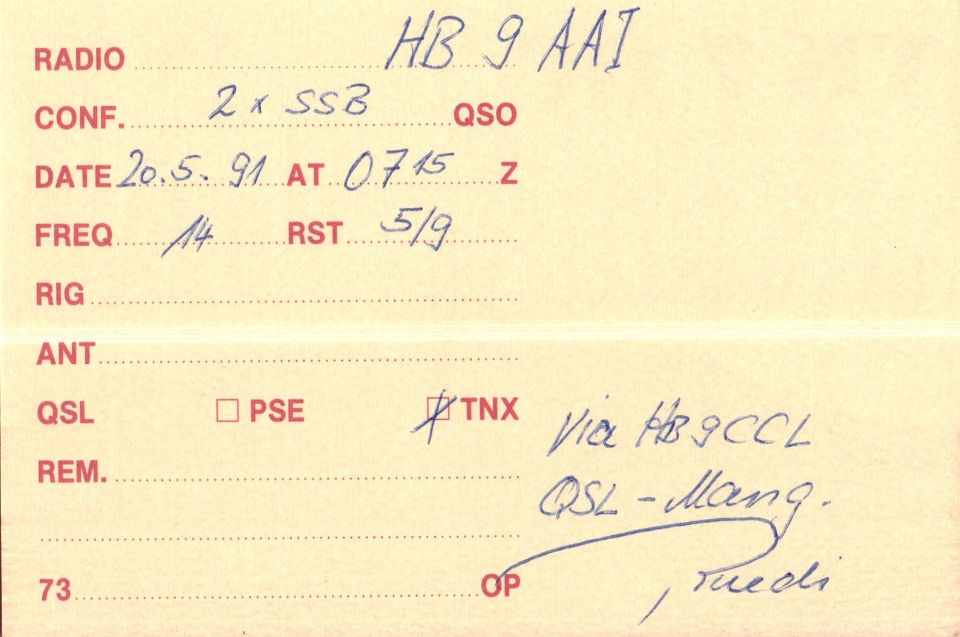 RADIO HB 9 AAI
CONF. 2 x SSB QSO
DATE 20.5.91 AT 0715 Z
FREQ 14 RST 5/9
RIG
ANT
QSL □ PSE ☒ TNX
via HB9CCL
REM.
QSL - Mang.
73 OP Ruedi